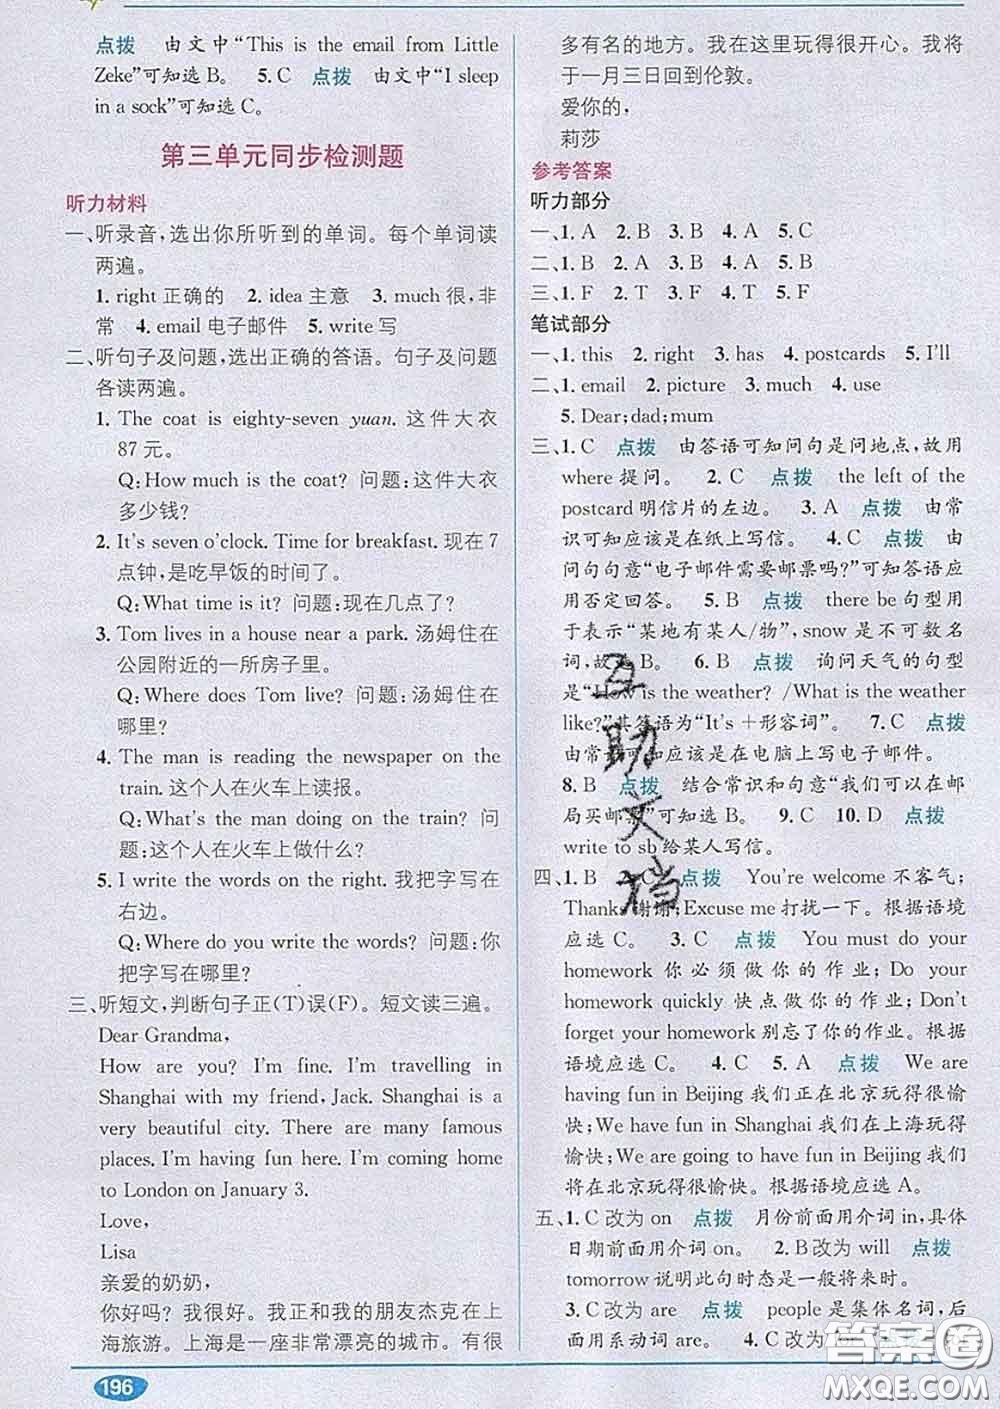 点拨 由文中“This is the email from Little
Zeke”可知选B。 5. C 点拨 由文中“I sleep
in a sock”可知选C。
第三单元同步检测题
听力材料
一、听录音,选出你所听到的单词。每个单词读
两遍。
1. right 正确的 2. idea 主意 3. much 很,非
常 4. email 电子邮件 5. write 写
二、听句子及问题,选出正确的答语。句子及问题
各读两遍。
1. The coat is eighty-seven yuan. 这件大衣
87元。
Q:How much is the coat? 问题:这件大衣
多少钱?
2. It's seven o'clock. Time for breakfast. 现在7
点钟,是吃早饭的时间了。
Q:What time is it? 问题:现在几点了?
3. Tom lives in a house near a park. 汤姆住在
公园附近的一所房子里。
Q:Where does Tom live? 问题:汤姆住在
哪里?
4. The man is reading the newspaper on the
train. 这个人在火车上读报。
Q:What's the man doing on the train? 问
题:这个人在火车上做什么?
5. I write the words on the right. 我把字写在
右边。
Q:Where do you write the words? 问题:你
把字写在哪里?
三、听短文,判断句子正(T)误(F)。短文读三遍。
Dear Grandma,
How are you? I'm fine. I'm travelling in
Shanghai with my friend, Jack. Shanghai is a
very beautiful city. There are many famous
places. I'm having fun here. I'm coming home
to London on January 3.
Love,
Lisa
亲爱的奶奶,
你好吗? 我很好。我正和我的朋友杰克在上
海旅游。上海是一座非常漂亮的城市。有很
196
多有名的地方。我在这里玩得很开心。我将
于一月三日回到伦敦。
爱你的,
莉莎
参考答案
听力部分
一、1. A 2. B 3. B 4. A 5. C
二、1. B 2. A 3. B 4. A 5. B
三、1. F 2. T 3. F 4. T 5. F
笔试部分
一、1. this 2. right 3. has 4. postcards 5. I'll
二、1. email 2. picture 3. much 4. use
5. Dear;dad;mum
三、1. C 点拨 由答语可知问句是问地点,故用
where 提问。 2. C 点拨 the left of the
postcard 明信片的左边。 3. A 点拨 由常
识可知应该是在纸上写信。 4. C 点拨 由
问句句意“电子邮件需要邮票吗?”可知答语应
用否定回答。 5. B 点拨 there be 句型用
于表示“某地有某人/物”,snow 是不可数名
词,故 B。 6. B 点拨 询问天气的句型
是“How is the weather? /What is the weather
like?”其答语为“It's ＋形容词”。 7. C 点拨
由常识可知应该是在电脑上写电子邮件。
8. B 点拨 结合常识和句意“我们可以在邮
局买邮票”可知选B。 9. C 10. D 点拨
write to sb 给某人写信。
四、1. B 2. C 点拨 You're welcome 不客气;
Thanks 谢谢;Excuse me 打扰一下。根据语境
应选C。 3. C 点拨 You must do your
homework 你必须做你的作业;Do your
homework quickly 快点做你的作业;Don't
forget your homework 别忘了你的作业。根据
语境应选C。 4. C 5. A 点拨 We are
having fun in Beijing 我们正在北京玩得很愉
快;We have fun in Shanghai 我们在上海玩得
愉快;We are going to have fun in Beijing 我们
将在北京玩得很愉快。根据语境应选A。
五、1. C 改为 on 点拨 月份前面用介词in,具体
日期前面用介词on。 2. B改为 will 点拨
tomorrow 说明此句时态是一般将来时。
3. C 改为 are 点拨 people 是集体名词,后
面用系动词 are。 4. C 改为
互助文档
答案圈
MXQE.COM